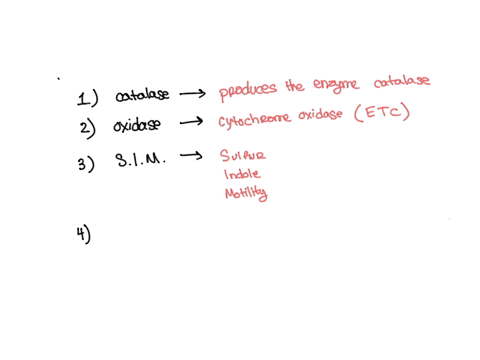 1) catalase → produces the enzyme catalase
2) oxidase → cytochrome oxidase (ETC)
3) S.I.M. → Sulfur
Indole
Motility
4)